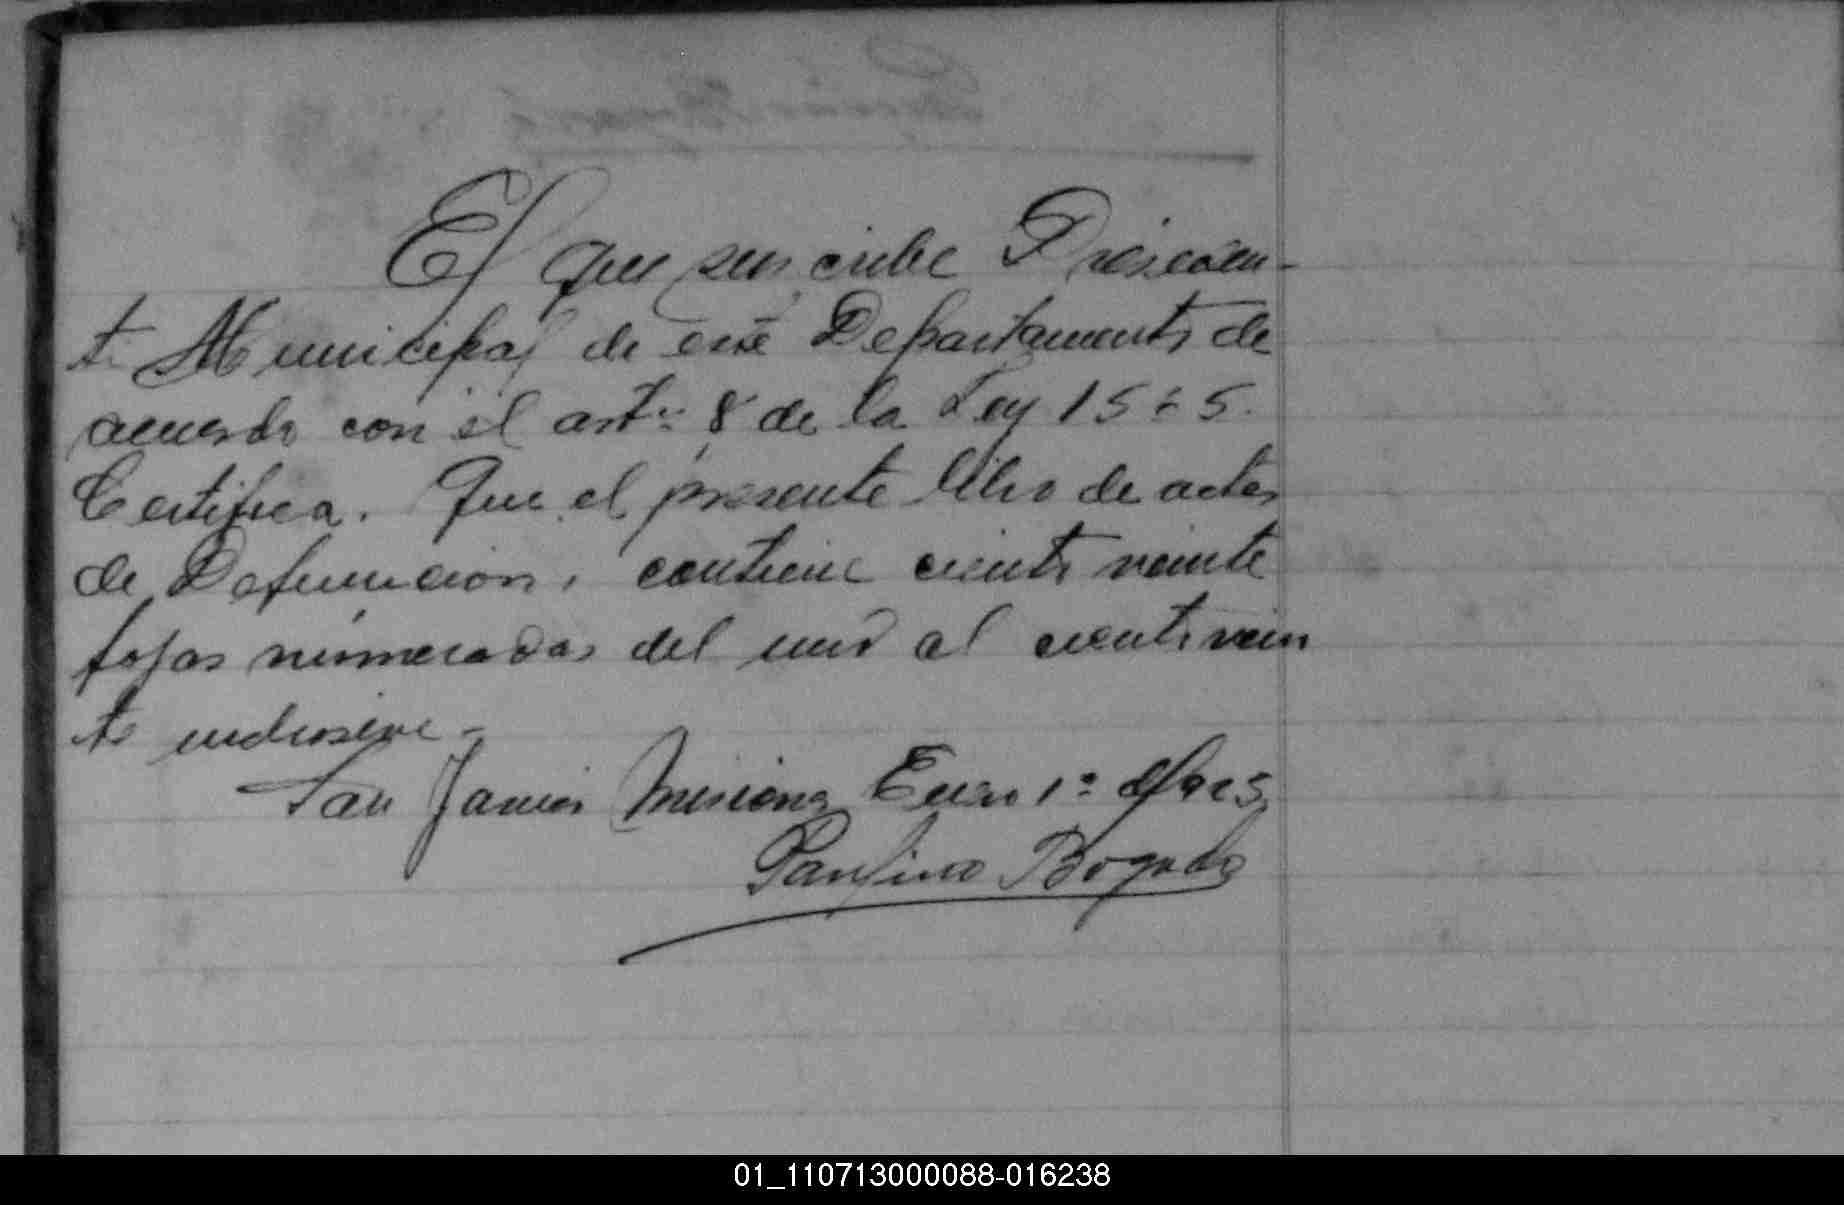 El que suscribe Presiden-
te Municipal de este Departamento de
acuerdo con el artº 8 de la Ley 1565.
Certifica. Que el presente libro de actas
de Defuncion, contiene ciento veinte
fojas númeradas del uno al ciento vein
te inclusive.-
San Javier Misiones Enero 1º de 1925
Paulino Bogado
01_110713000088-016238